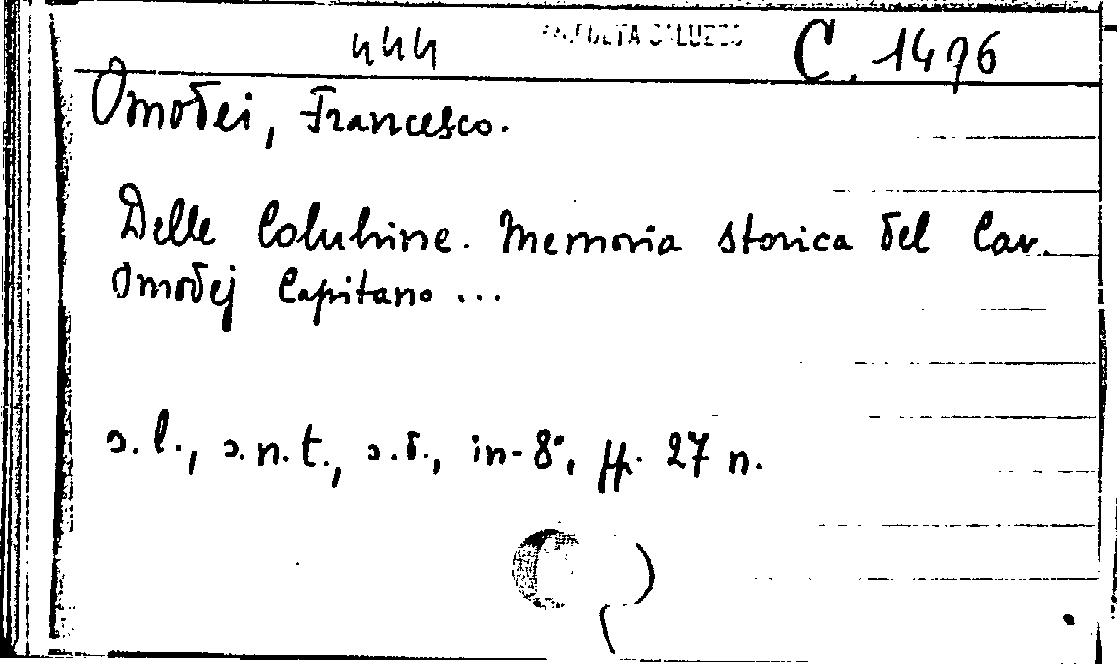 444 SALUZZO C. 1476
Omodei, Francesco.
Delle Colubrine. Memoria storica del Cav.
Omodej Capitano ...
s.l., s.n.t., s.d., in-8°, pp. 27 n.